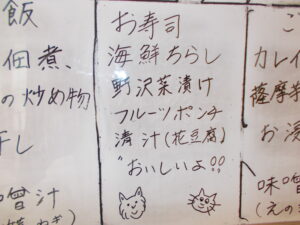 飯
佃煮、
の炒め物
干し
味噌汁
お寿司
海鮮ちらし
野沢菜漬け
フルーツポンチ
清汁(花豆腐)
"おいしいよ!!
カレイ
薩摩
お浸
味噌
(えの